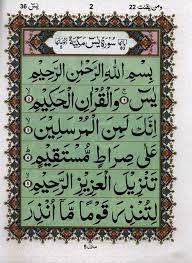 ومن يقنت 22
2
يٰس 36
سُورَةُ يٰسٓ مَكِّيَّةٌ
بِسْمِ اللهِ الرَّحْمٰنِ الرَّحِيْمِ
يٰسٓ ۝١ وَالْقُرْاٰنِ الْحَكِيْمِ ۝٢
اِنَّكَ لَمِنَ الْمُرْسَلِيْنَ ۝٣
عَلٰى صِرَاطٍ مُّسْتَقِيْمٍ ۝٤
تَنْزِيْلَ الْعَزِيْزِ الرَّحِيْمِ ۝٥
لِتُنْذِرَ قَوْمًا مَّآ اُنْذِرَ